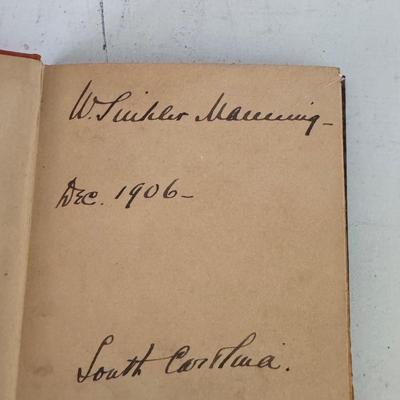 W. Sinkler Manning-
Dec. 1906-
South Carolina.